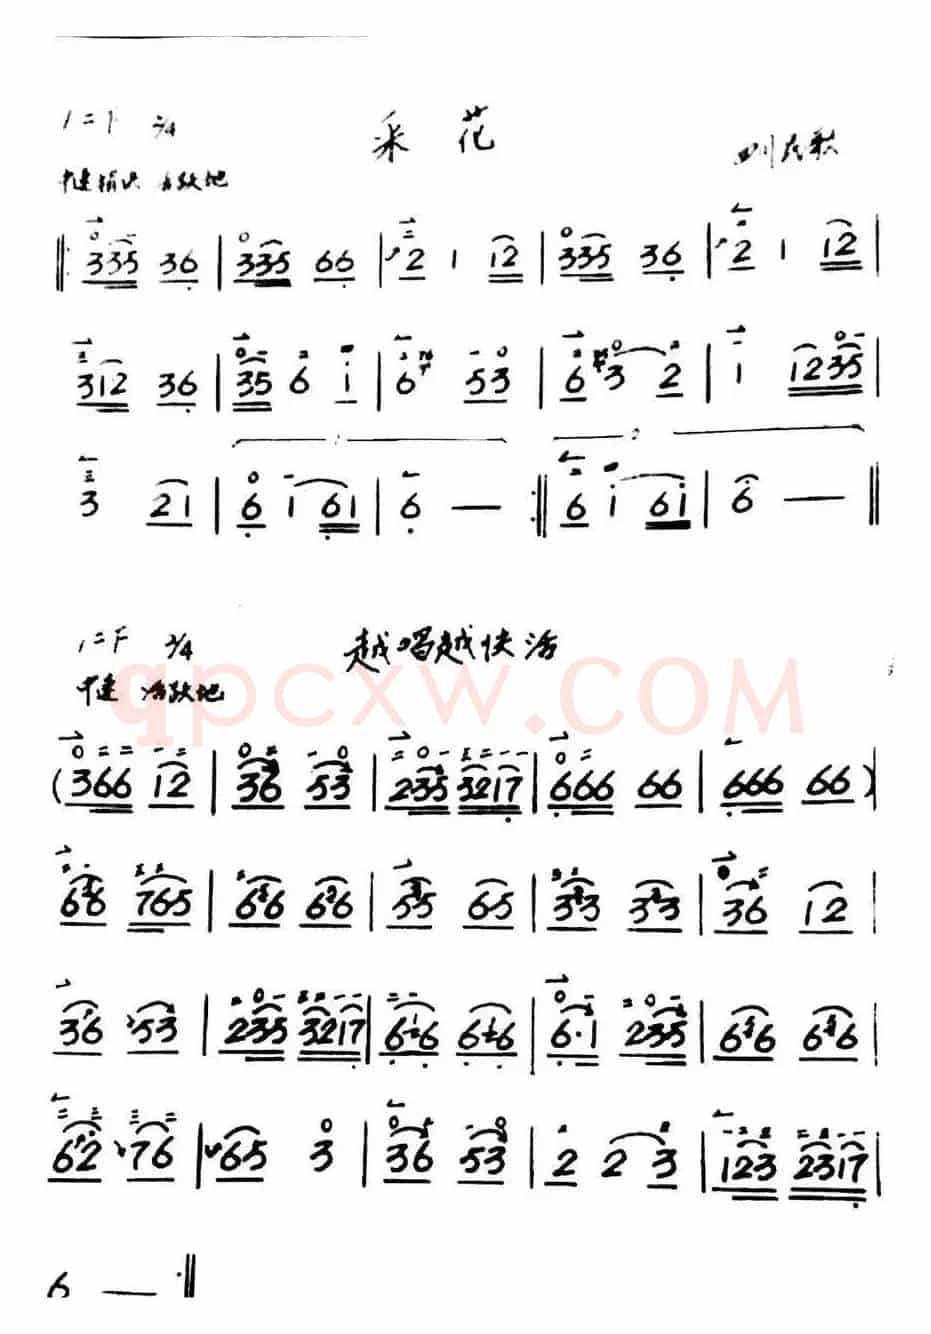 1=F 2/4
采花
四川民歌
中速稍快 活跃地
‖: 335 36 | 335 66 | 2 1 12 | 335 36 | 2 1 12 |
312 36 | 35 6 i | 6 53 | 6 3 2 | 1 1235 |
3 21 | 6 1 61 | 6 — :‖ 6 i 6i | 6 — ‖
1=F 2/4
越唱越快活
中速 活跃地
qpcxw.COM
(366 12 | 36 53 | 235 3217 | 666 66 | 666 66) |
66 765 | 66 66 | 55 65 | 33 33 | 36 12 |
36 53 | 235 3217 | 66 66 | 6·1 235 | 66 66 |
62 76 | 65 3 | 36 53 | 2 2 3 | 123 2317 |
6 — :‖